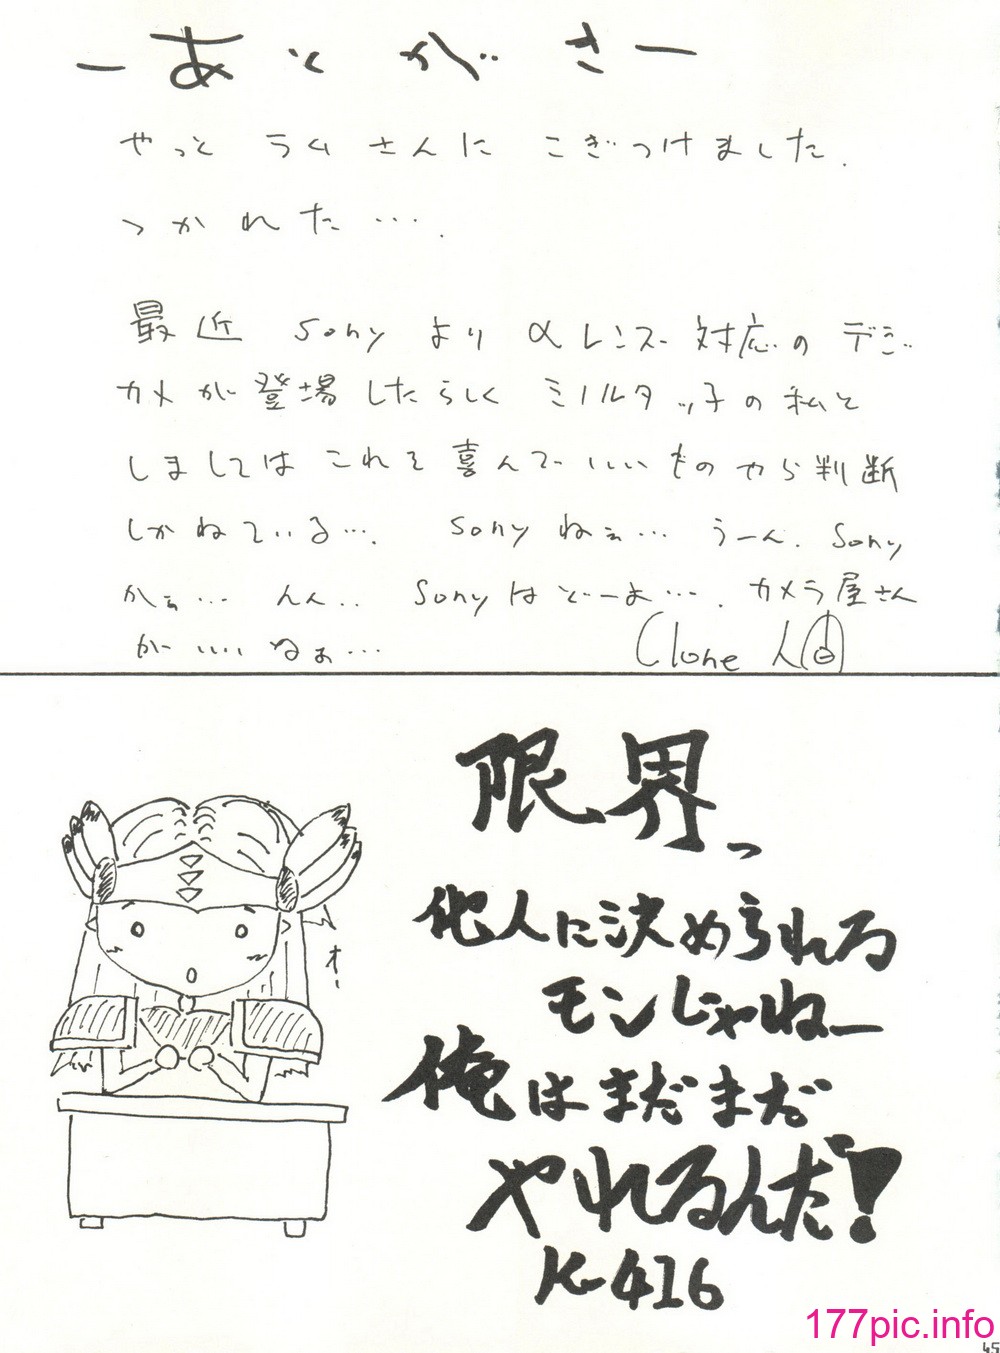 －あとがき－
やっと ラムさんに こぎつけました.
つかれた….
最近 Sony より αレンズ対応のデジ
カメが登場したらしく ミノルタッ子の私と
しましては これを喜んでいいものやら判断
しかねている…. Sonyねぇ… うーん. Sony
かぁ… んん.. Sonyはどーよ…. カメラ屋さん
がいいねぇ…
Clone人間
限界っ
他人に決められる
モンじゃねー
俺はまだまだ
やれるんだ!
K-416
オー
177pic.info
45